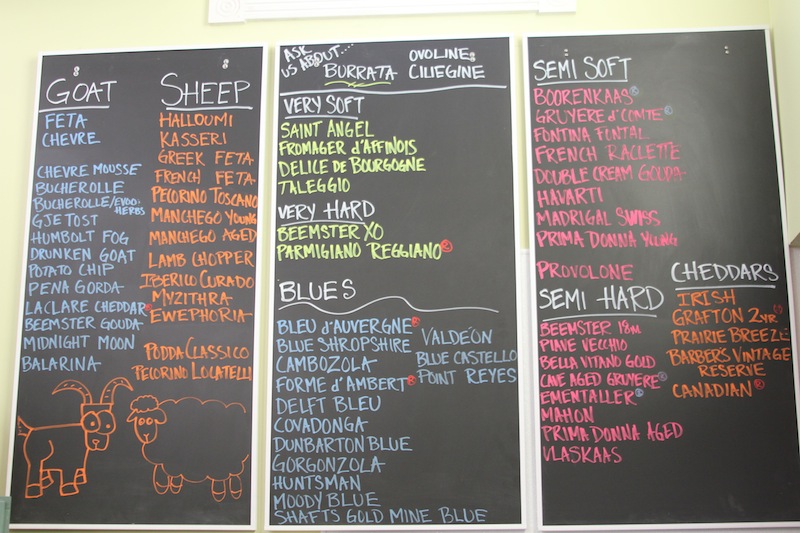 GOAT
FETA
CHEVRE
CHEVRE MOUSSE
BUCHEROLLE
BUCHEROLLE/EVOO HERBS
GJETOST
HUMBOLT FOG
DRUNKEN GOAT
POTATO CHIP
PENA GORDA
LACLARE CHEDDAR ®
BEEMSTER GOUDA
MIDNIGHT MOON
BALARINA
SHEEP
HALLOUMI
KASSERI
GREEK FETA
FRENCH FETA
PECORINO TOSCANO
MANCHEGO YOUNG
MANCHEGO AGED
LAMB CHOPPER
IBERICO CURADO
MYZITHRA
EWEPHORIA
PODDA CLASSICO
PECORINO LOCATELLI
ASK US ABOUT....
BURRATA
OVOLINE
CILIEGINE
VERY SOFT
SAINT ANGEL
FROMAGER d'AFFINOIS
DELICE DE BOURGOGNE
TALEGGIO
VERY HARD
BEEMSTER XO
PARMIGIANO REGGIANO ®
BLUES
BLEU d'AUVERGNE ®
BLUE SHROPSHIRE
CAMBOZOLA
FORME d'AMBERT ®
DELFT BLEU
COVADONGA
DUNBARTON BLUE
GORGONZOLA
HUNTSMAN
MOODY BLUE
SHAFTS GOLD MINE BLUE
VALDEÓN
BLUE CASTELLO
POINT REYES
SEMI SOFT
BOORENKAAS ®
GRUYERE d'COMTE ®
FONTINA FONTAL
FRENCH RACLETTE
DOUBLE CREAM GOUDA
HAVARTI
MADRIGAL SWISS
PRIMA DONNA YOUNG
PROVOLONE
SEMI HARD
BEEMSTER 18m
PIAVE VECCHIO
BELLA VITANO GOLD
CAVE AGED GRUYERE ®
EMENTALLER ®
MAHON
PRIMA DONNA AGED
VLASKAAS
CHEDDARS
IRISH
GRAFTON 2YR ®
PRAIRIE BREEZE
BARBERS VINTAGE
RESERVE
CANADIAN ®